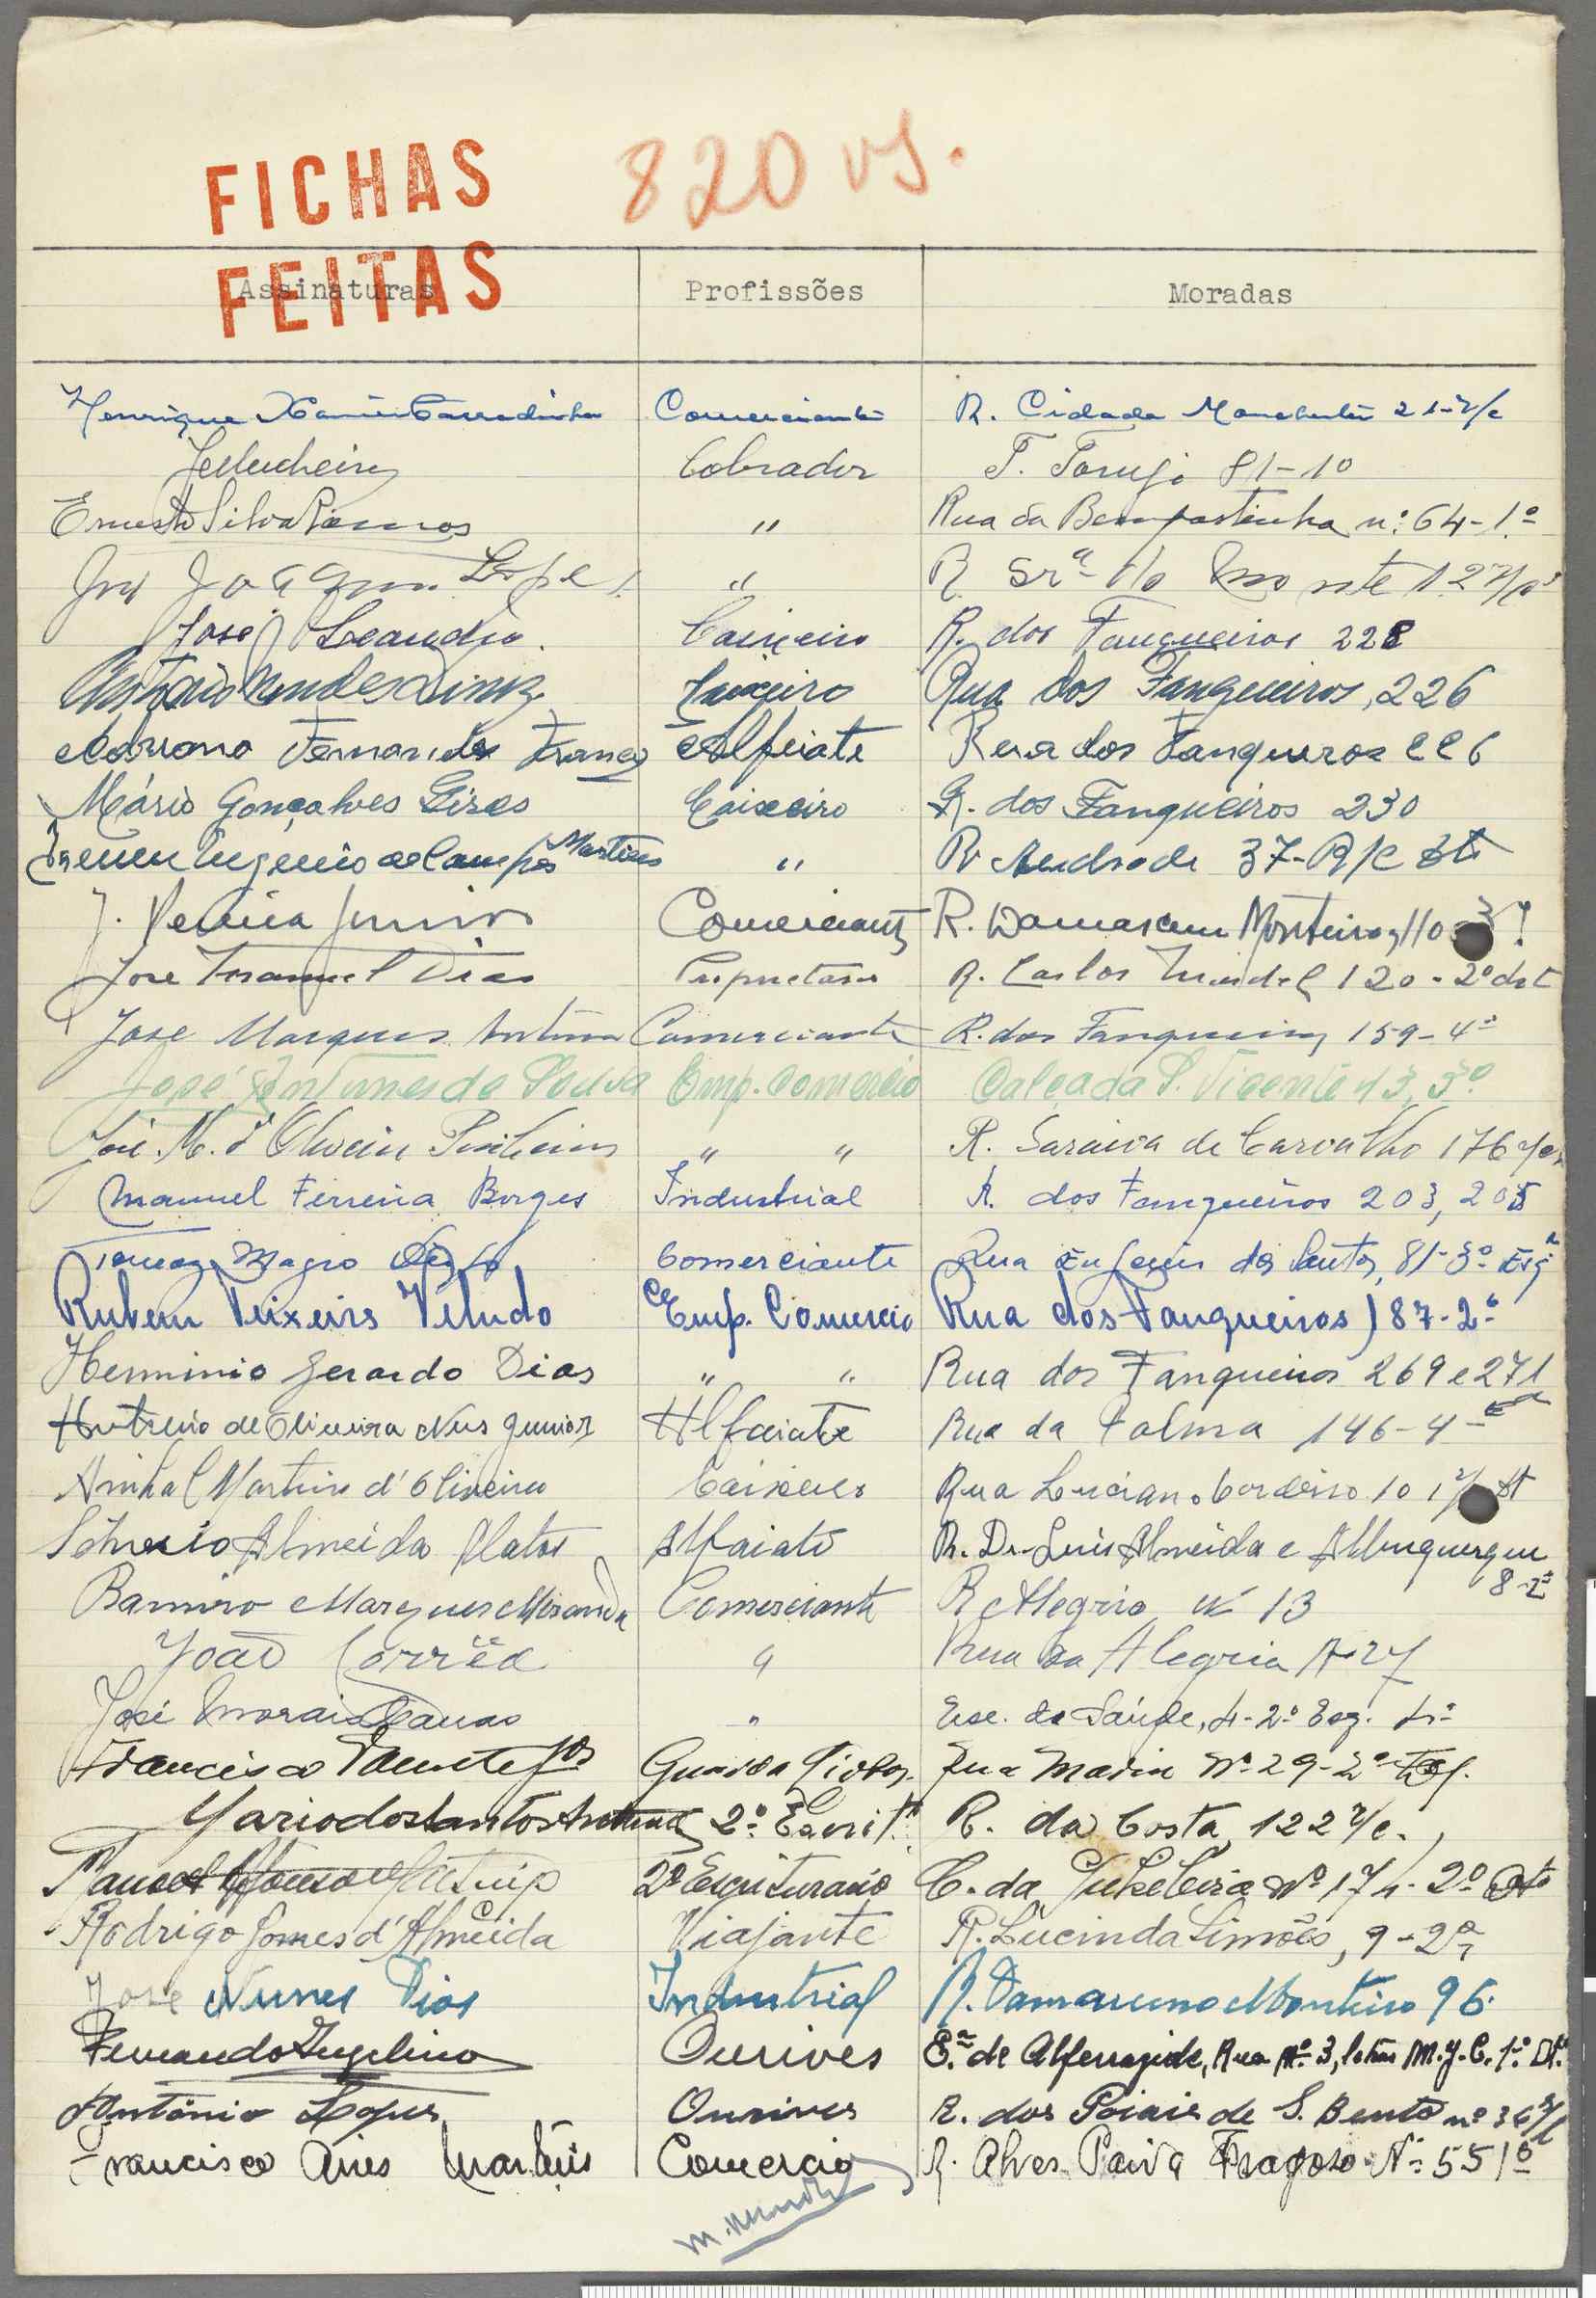 FICHAS 820 vs.
FEITAS
Assinaturas Profissões Moradas
Henrique Xavier Carradinha Comerciante R. Cidade Manchester 21-r/c
Cobrador T. Torujo 81-1º
Ernesto Silva Ramos " Rua da Bempostinha nº 64-1.º
José Joaquim Lopes " R. Srª do Monte 12 r/c
José Leandro. Caixeiro R. dos Fanqueiros 228
António Mendes Diniz Caixeiro Rua dos Fanqueiros, 226
Adriano Fernandes Franco Alfaiate Rua dos Fanqueiros 226
Mário Gonçalves Caixeiro R. dos Fanqueiros 230
Eugenio de Campos Martins " R. Andrade 37-R/c
J. Pereira Junior Comerciante R. Damasceno Monteiro, 110
José Manuel Dias Proprietario R. Carlos Mardel 120-2º dt
José Marques Antunes Comerciante R. dos Fanqueiros 159-4º
José Antunes de Sousa Emp. Comercio Calçada S. Vicente 13, 3º
José M. d'Oliveira " " R. Saraiva de Carvalho 176 r/c
Manuel Ferreira Borges Industrial R. dos Fanqueiros 203, 205
Tomaz Magro Comerciante Rua Eugenio dos Santos, 81-3º Esqº
Rubem Teixeira Veludo Emp. Comercio Rua dos Fanqueiros 187-2º
Herminio Gerardo Dias " " Rua dos Fanqueiros 269 e 271
de Oliveira Neves Junior Alfaiate Rua da Palma 146-4º
Anibal Martins d'Oliveira Caixeiro Rua Luciano Cordeiro 10
Silverio Almeida Matos Alfaiate R. Dr. Luis Almeida e Albuquerque
8-2º
Ramiro Marques Miranda Comerciante R. Alegria Nº 13
João Corrêa " Rua da Alegria 27
José Morais " Esc. da Saúde, 4-2º Esq.
Francisco Guarda Rua Maria Nº 29-2º Esq.
Mario dos Santos 2º Escrit. R. da Costa, 122 r/c.
Manuel Afonso 2º Escriturario C. da Nº 174-2º Dto
Rodrigo Gomes d'Almeida Viajante R. Lucinda Simões, 9-2º
José Nunes Dias Industrial R. Damasceno Monteiro 96.
Fernando Ourives E.ª de Alfragide, Rua Nº 3, letras M.J.C. 1º Dtº
António Lopes Ourives R. dos Poiais de S. Bento nº 36 r/c
Francisco Aires Martins Comercio R. Alves Paiva Fragoso Nº 55 1º